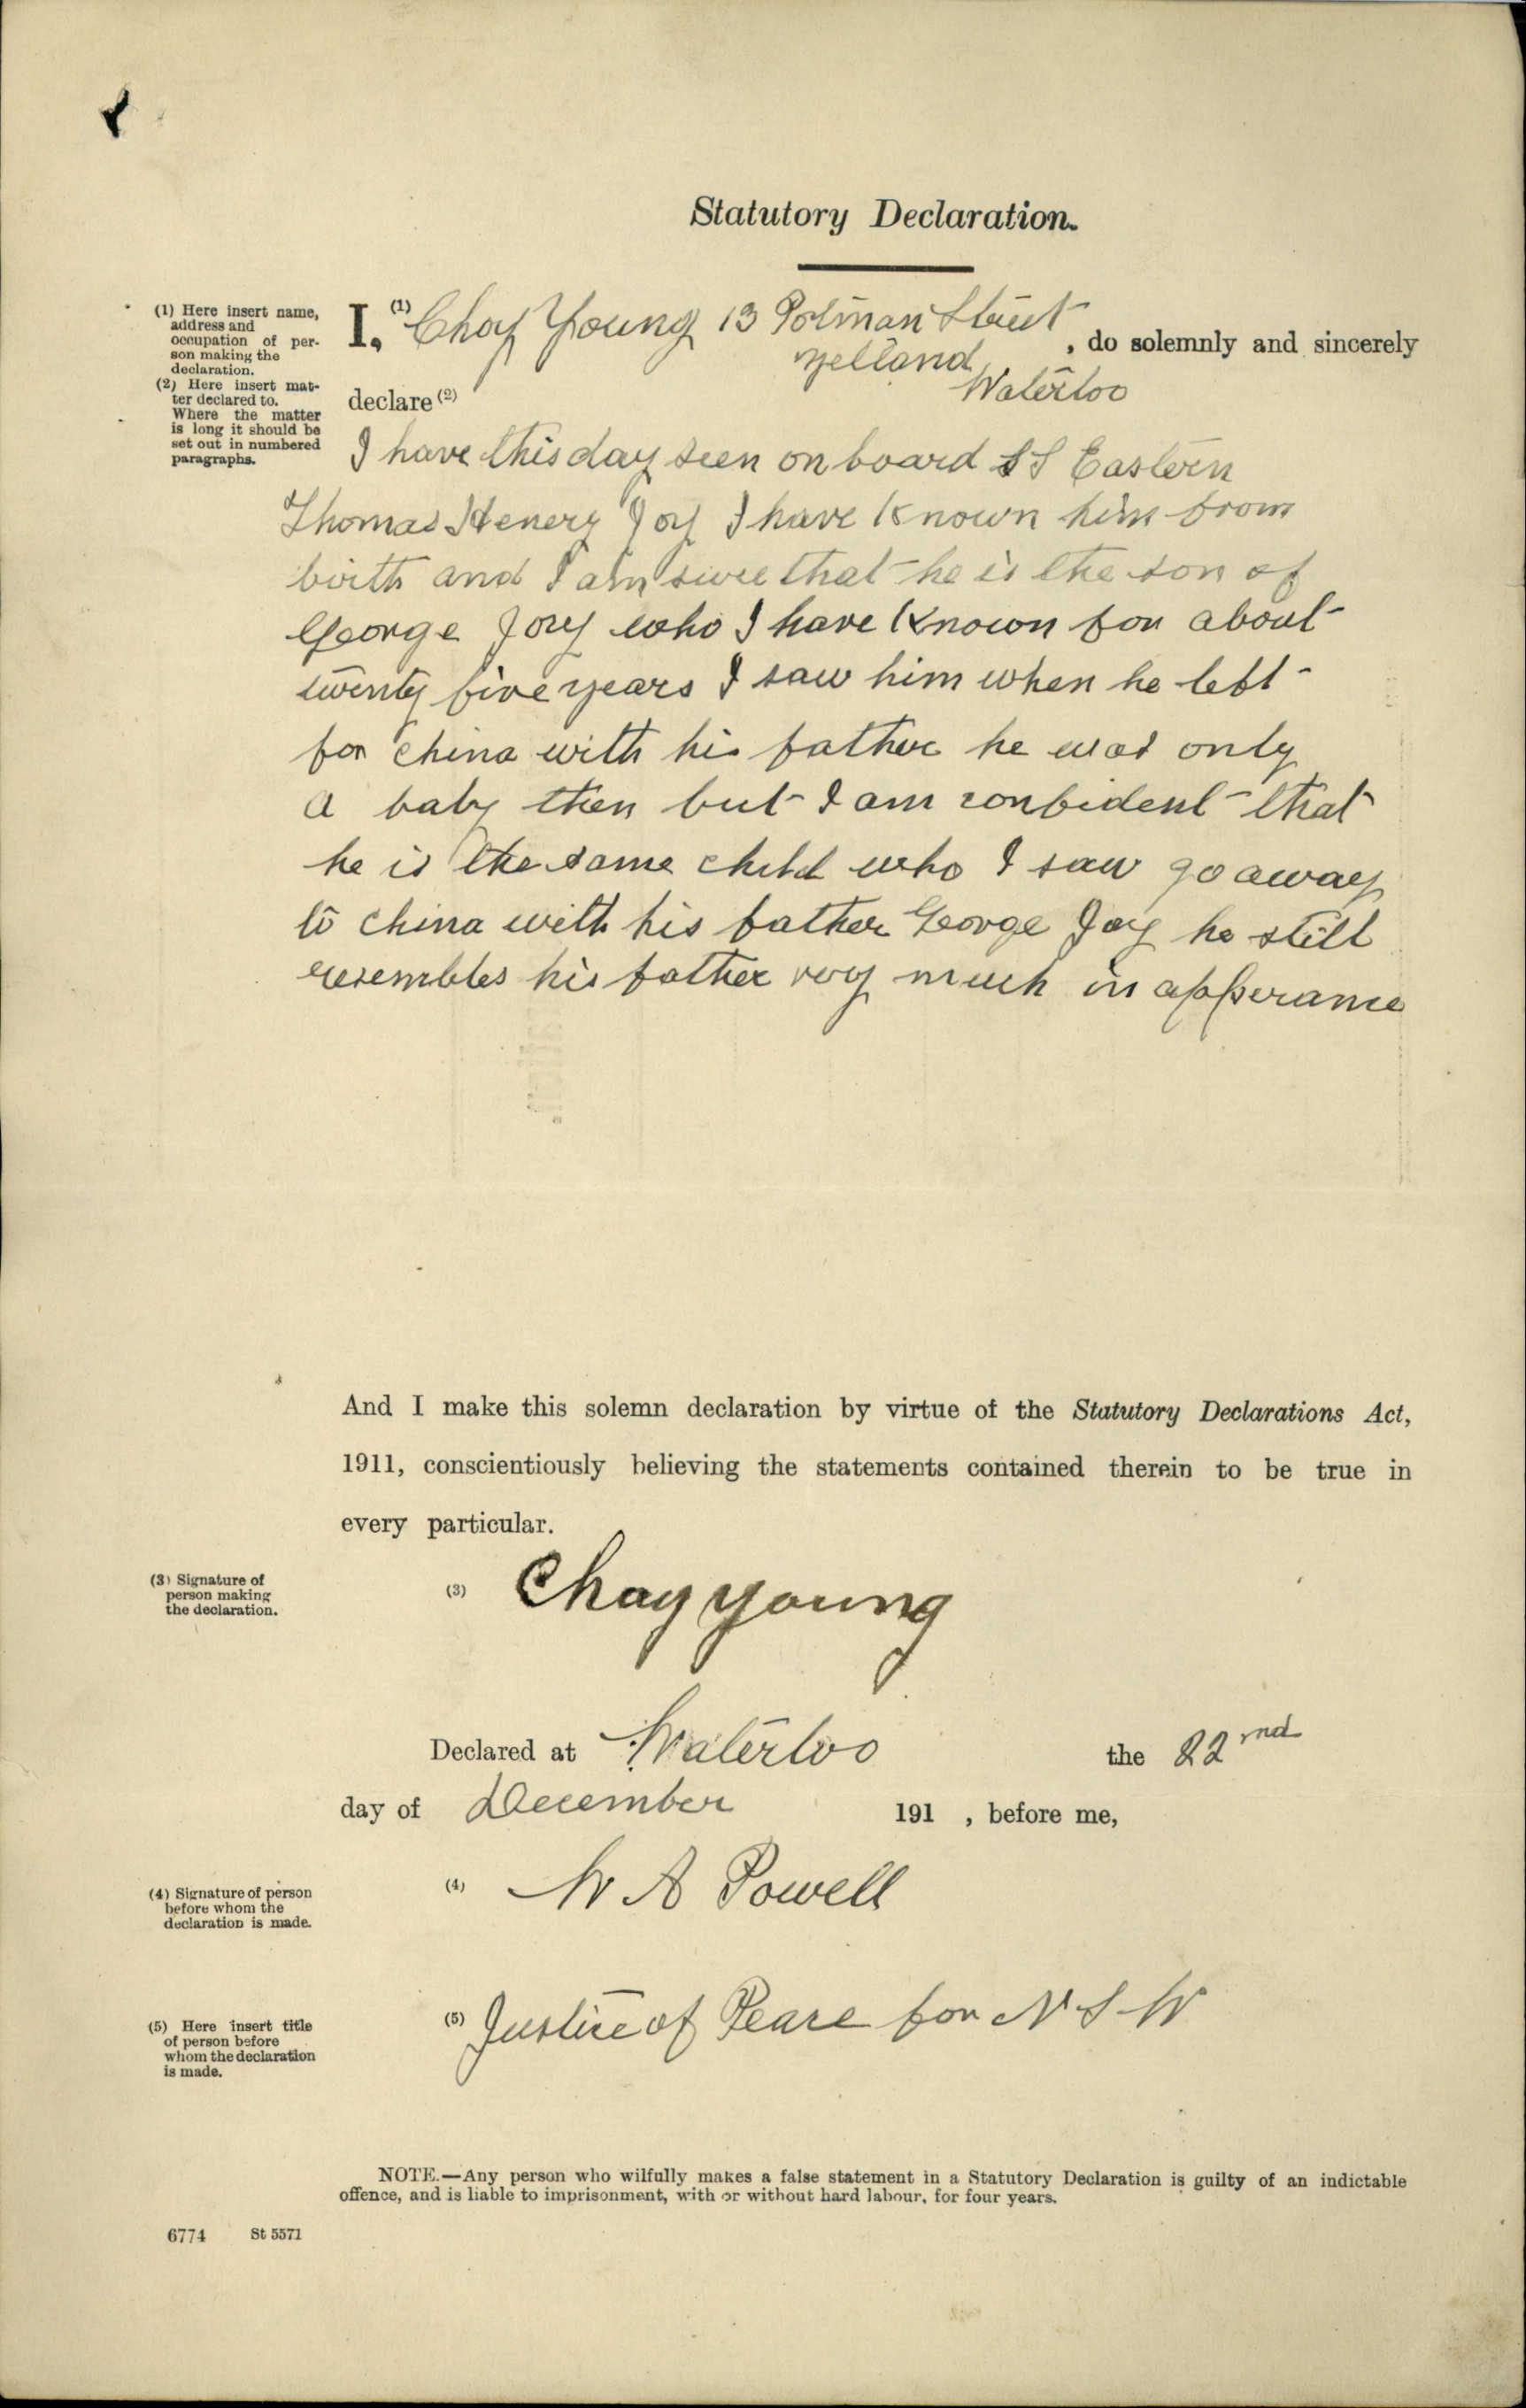 Statutory Declaration.
(1) Here insert name,
address and
occupation of per-
son making the
declaration.
(2) Here insert mat-
ter declared to.
Where the matter
is long it should be
set out in numbered
paragraphs.
I, (1) Choy Young 13 Potman Street
, do solemnly and sincerely
Zetland
Waterloo
declare (2)
I have this day seen on board SS Eastern
Thomas Henery Joy I have Known him from
birth and I am sure that he is the son of
George Joy who I have Known for about
twenty five years I saw him when he left
for China with his father he was only
a baby then but I am confident that
he is the same child who I saw go away
to China with his father George Joy he still
resembles his father very much in apperance
And I make this solemn declaration by virtue of the Statutory Declarations Act,
1911, conscientiously believing the statements contained therein to be true in
every particular.
(3) Signature of
person making
the declaration.
(3) Chay young
Declared at Waterloo the 22nd
day of December 191 , before me,
(4) Signature of person
before whom the
declaration is made.
(4) W A Powell
(5) Here insert title
of person before
whom the declaration
is made.
(5) Justice of Peace for N S W
NOTE.—Any person who wilfully makes a false statement in a Statutory Declaration is guilty of an indictable
offence, and is liable to imprisonment, with or without hard labour, for four years.
6774 St 5571